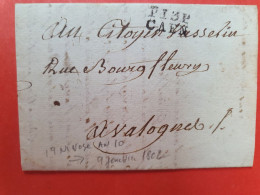 P13P
CAEN
Au Citoyen Josselin
Rue Bourg fleury
a valognes
9 Nivose an 10
9 Janvier 1802